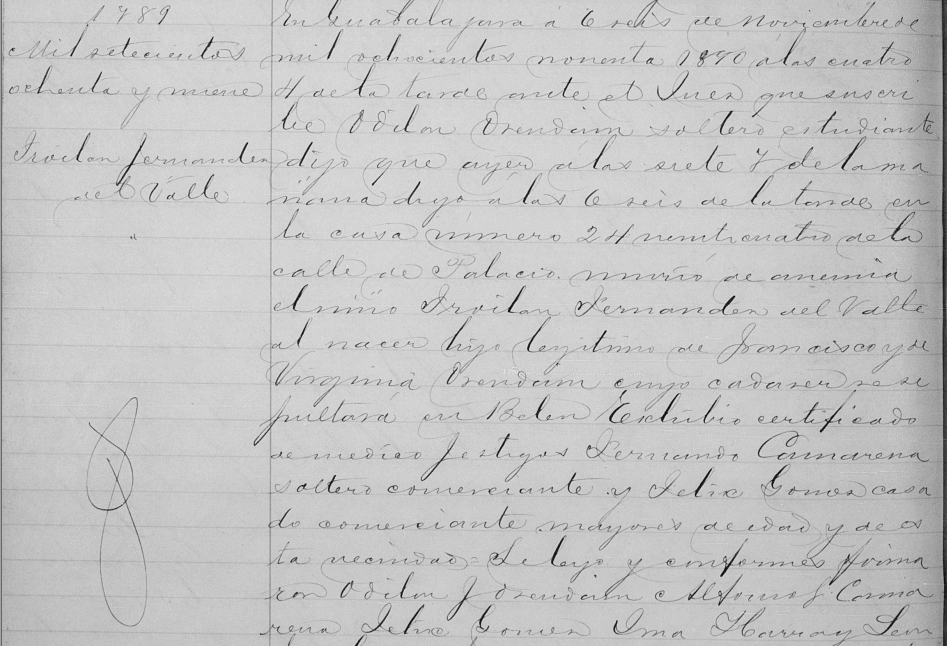 1789
Mil setecientos
ochenta y nueve
Froilan Fernandez
del Valle
En Guadalajara á 6 seis de Noviembre de
mil ochocientos noventa 1890 á las cuatro
4 de la tarde ante el Juez que suscri
be Odilon Orendain soltero estudiante
dijo que ayer á las siete 7 de la ma
ñana digo á las 6 seis de la tarde en
la casa número 24 veinticuatro de la
calle de Palacio. murió de anemia
el niño Froilan Fernandez del Valle
al nacer hijo legitimo de Francisco y de
Virginia Orendain cuyo cadaver se se
pultará en Belen Exhibio certificado
de medico Testigos Fernando Camarena
soltero comerciante y Felix Gomez casa
do comerciante mayores de edad y de es
ta vecindad = Se leyo y conformes firma
ron Odilon J Orendain Alfonso J. Cama
rena Felix Gomez